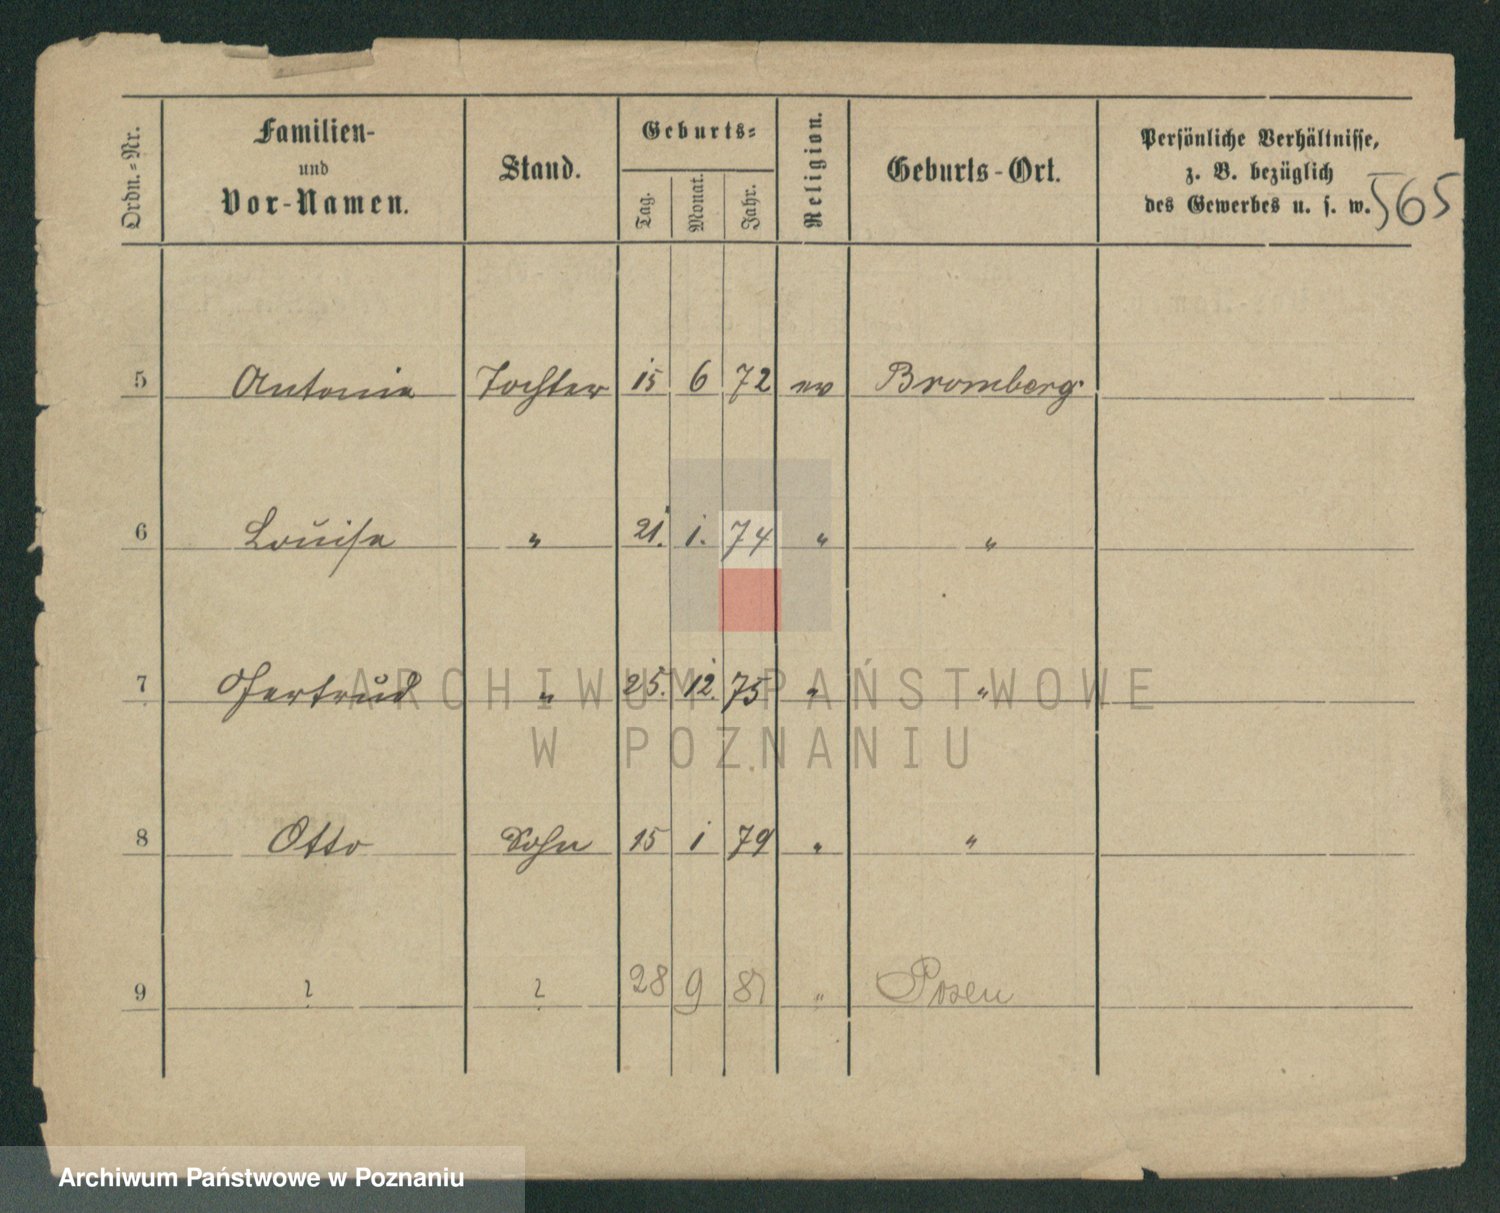 Ordn.-Nr. Familien- und Vor-Namen. Stand. Geburts- Tag. Monat. Jahr. Religion. Geburts-Ort. Persönliche Verhältnisse, z. B. bezüglich des Gewerbes u. s. w. 565
5 Antonie Tochter 15 6 72 ev Bromberg
6 Louise " 21. 1. 74 " "
7 Gertrud " 25. 12. 75 " "
8 Otto Sohn 15 1 79 " "
9 ? ? 28 9 81 " Posen
ARCHIWUM PAŃSTWOWE
W POZNANIU
Archiwum Państwowe w Poznaniu